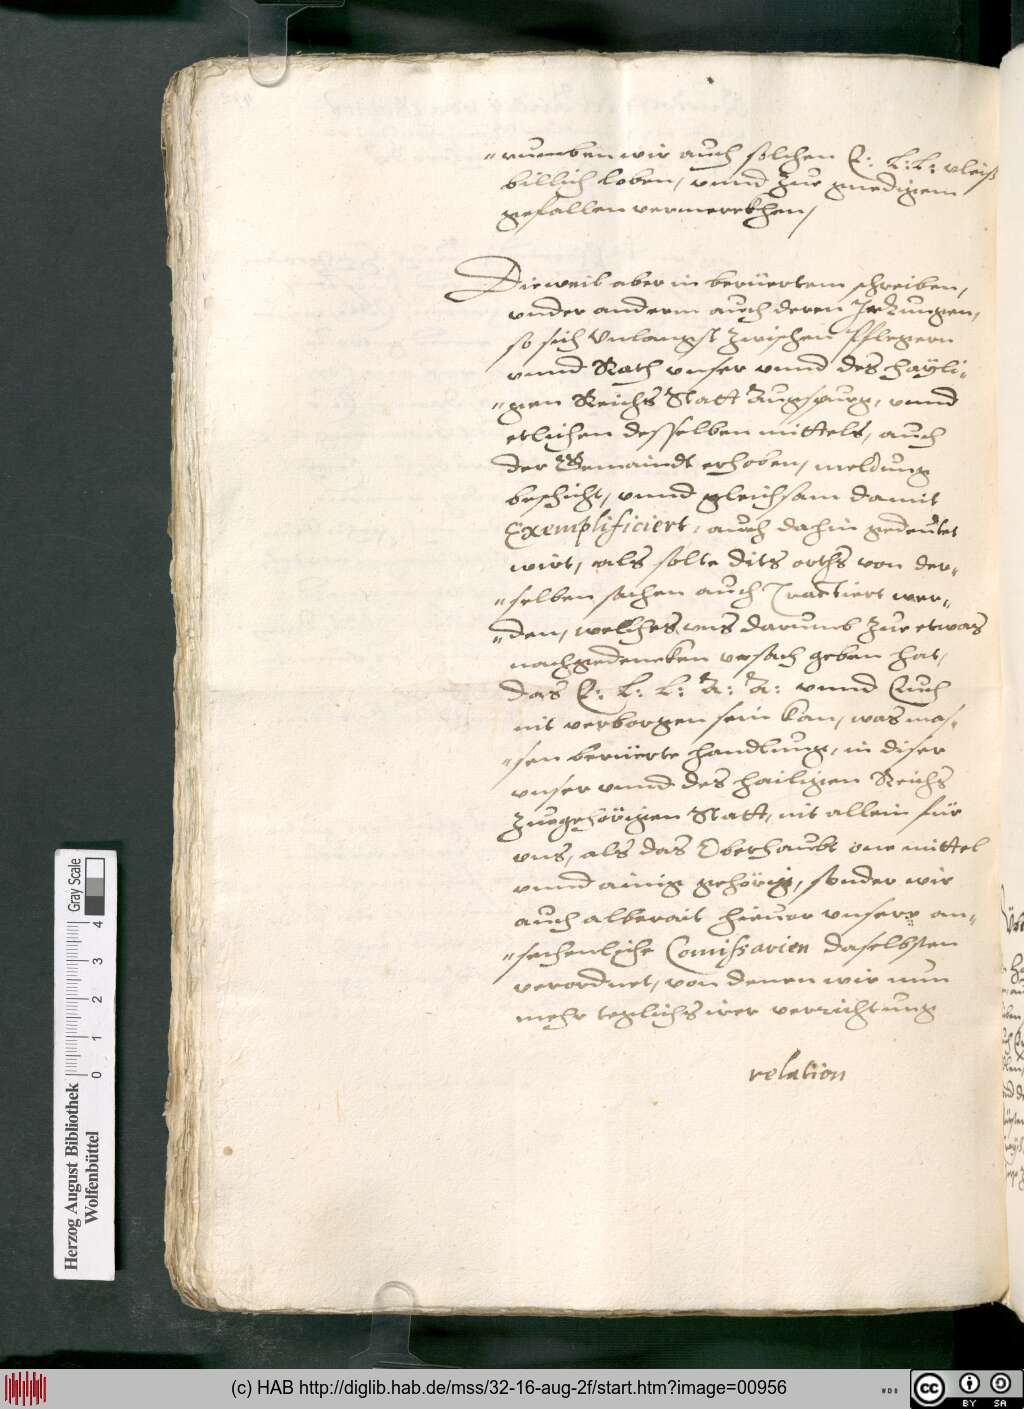 "rumben wir auch solchen E: L: L: vleiß
billich loben, vnnd zue gnedigem
gefallen vermerckhen,
Dieweil aber in berüertem schreiben,
vnder anderm auch deren Irrungen,
so sich Vnlangst zwischen Pflegern
vnnd Rath vnser vnnd des hayli-
"gen Reichs Statt Augspurg, vnnd
etlichen desselben mittels, auch
der Gemaindt erhoben, meldung
beschicht, vnnd gleichsam damit
Exemplificiert, auch dahin gedeutet
wirt, als solte dits orths von der-
"selben sachen auch Tractiert wer-
"den, welches vns darumb zue etwas
nachgedencken vrsach geben hat,
das E: L: L: A: A: vnnd Euch
nit verborgen sein kan, was mas-
"sen berüerte handlung, in diser
vnser vnnd des hailigen Reichs
zuegehörigen Statt, nit allein für
vns, als das Oberhaubt one mittel
vnnd ainig gehörig, sonder wir
auch alberait hieuor vnsere an-
"sehenliche Comissarien daselbsten
verordnet, von denen wir nun
mehr teglichs irer verrichtung
relation
Herzog August Bibliothek
Wolfenbüttel
0 1 2 3 4
Gray Scale
(c) HAB http://diglib.hab.de/mss/32-16-aug-2f/start.htm?image=00956
WDB
cc BY SA